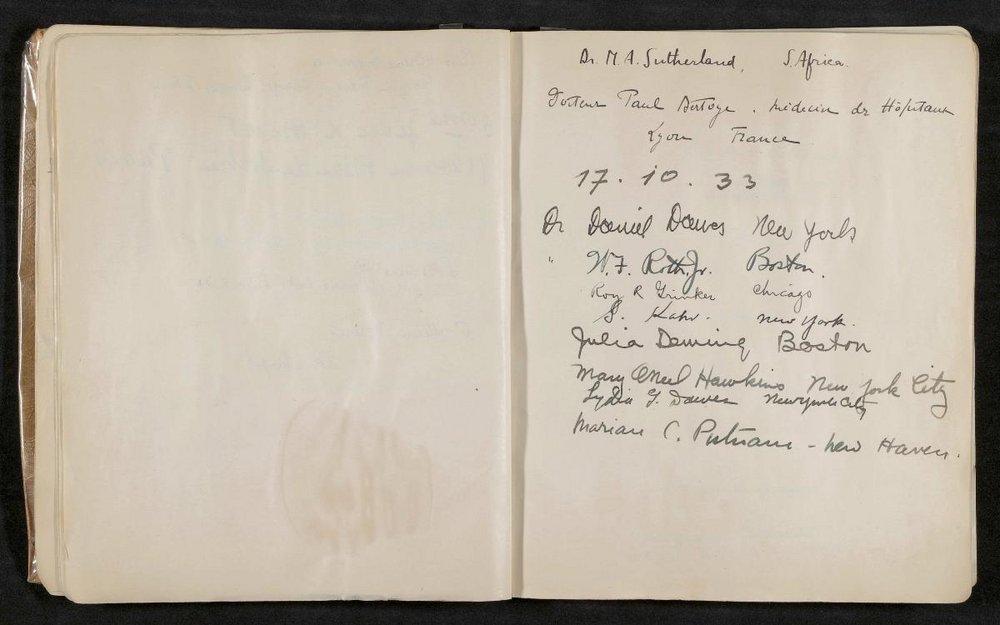 Dr. M. A. Sutherland, S. Africa.
Docteur Paul Bertoye. Médecin des Hôpitaux
Lyon France
17.10.33
Dr Daniel Dawes New York
" W. F. Roth Jr. Boston.
Roy R Grinker Chicago
S. Kahr. New York.
Julia Deming Boston
Mary O'Neil Hawkins New York City
Lydia G. Dawes New York City
Marian C. Putnam - New Haven.